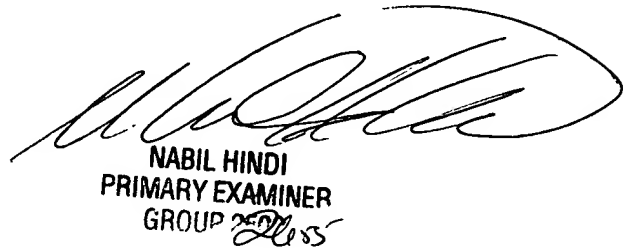 NABIL HINDI
PRIMARY EXAMINER
GROUP